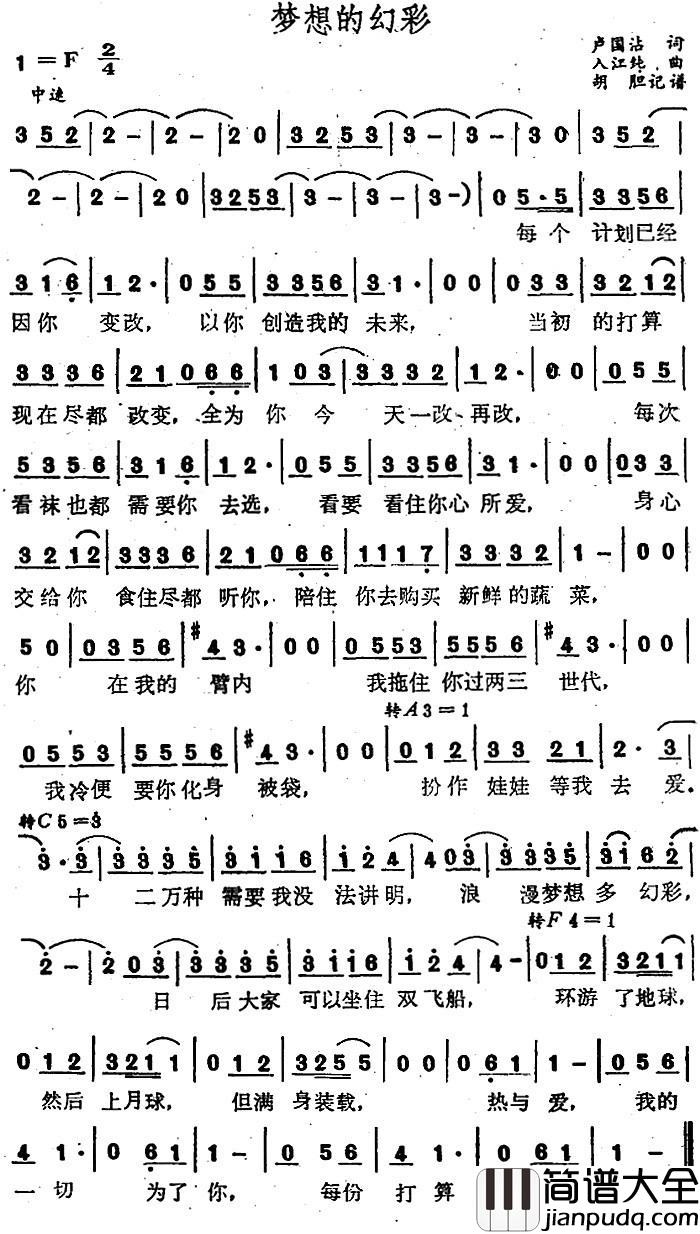 梦想的幻彩
1=F 2/4
卢国沾 词
入江纯 曲
胡 胆记谱
中速
3 5 2 | 2 - | 2 - | 2 0 | 3 2 5 3 | 3 - | 3 - | 3 0 | 3 5 2 |
2 - | 2 - | 2 0 | 3 2 5 3 | 3 - | 3 - | 3 -) | 0 5·5 | 3 3 5 6 |
每 个 计划已经
3 1 6 | 1 2 · | 0 5 5 | 3 3 5 6 | 3 1 · | 0 0 | 0 3 3 | 3 2 1 2 |
因你 变改, 以你 创造我的 未来, 当初 的打算
3 3 3 6 | 2 1 0 6 6 | 1 0 3 | 3 3 3 2 | 1 2 · | 0 0 | 0 5 5 |
现在尽都 改变, 全为 你 今 天一改再改, 每次
5 3 5 6 | 3 1 6 | 1 2 · | 0 5 5 | 3 3 5 6 | 3 1 · | 0 0 | 0 3 3 |
看袜也都 需要你 去选, 看要 看住你心 所爱, 身心
3 2 1 2 | 3 3 3 6 | 2 1 0 6 6 | 1 1 1 7 | 3 3 3 2 | 1 - | 0 0 |
交给你 食住尽都 听你, 陪住 你去购买 新鲜的蔬 菜,
5 0 | 0 3 5 6 | #4 3 · | 0 0 | 0 5 5 3 | 5 5 5 6 | #4 3 · | 0 0 |
你 在我的 臂内 我拖住 你过两三 世代,
转A 3=1
0 5 5 3 | 5 5 5 6 | #4 3 · | 0 0 | 0 1 2 | 3 3 2 1 | 2 · 3 |
我冷便 要你化身 被袋, 扮作 娃娃 等我 去 爱.
转C 5=3
3 · 3 | 3 3 3 5 | 3 1 1 6 | 1 2 4 | 4 0 3 | 3 3 3 5 | 3 1 6 2 |
十 二万种 需要我没 法讲明, 浪 漫梦想 多 幻彩,
转F 4=1
2 - | 2 0 3 | 3 3 3 5 | 3 1 1 6 | 1 2 4 | 4 - | 0 1 2 | 3 2 1 1 |
日 后大家 可以坐住 双飞船, 环游 了地球,
0 1 2 | 3 2 1 1 1 | 0 1 2 | 3 2 5 5 5 | 0 0 | 0 6 1 | 1 - | 0 5 6 |
然后 上月球, 但满 身装载, 热与 爱, 我的
4 1 · | 0 6 1 | 1 - | 0 5 6 | 4 1 · | 0 6 1 | 1 - ‖
一切 为了 你, 每份 打算
简谱大全
jianpudq.com